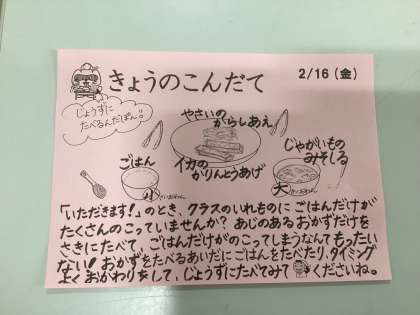 きょうのこんだて
2/16(金)
じょうずに
たべるんだぽん!!
やさいの
からしあえ
じゃがいもの
みそしる
ごはん
イカの
かりんとうあげ
小
大
「いただきます!」のとき、クラスのいれものに ごはんだけが
たくさんのこっていませんか? あじのあるおかずだけを
さきにたべて、ごはんだけがのこってしまうなんて もったい
ない! おかずをたべるあいだにごはんをたべたり、タイミング
よく おかわりをして、じょうずにたべてみて くださいね。